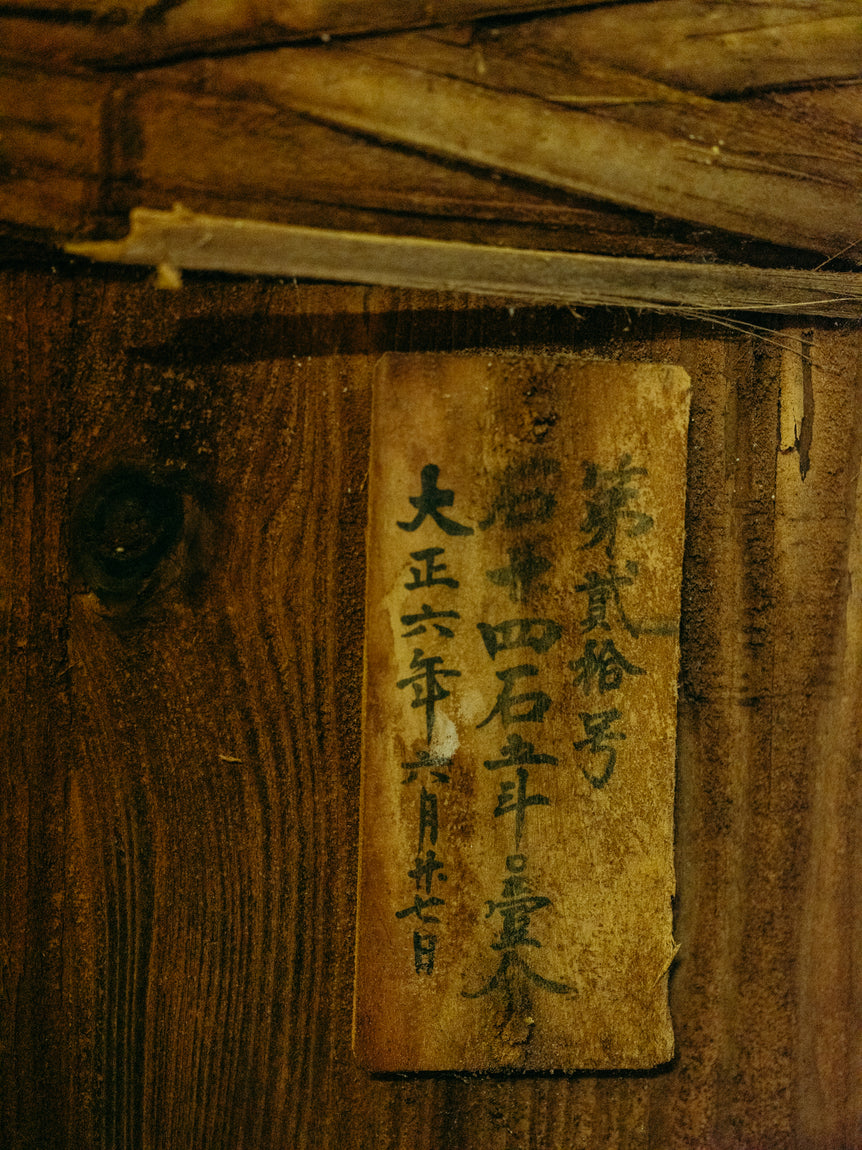 第貳拾号
廿四石五斗〇壹合
大正六年六月廿七日